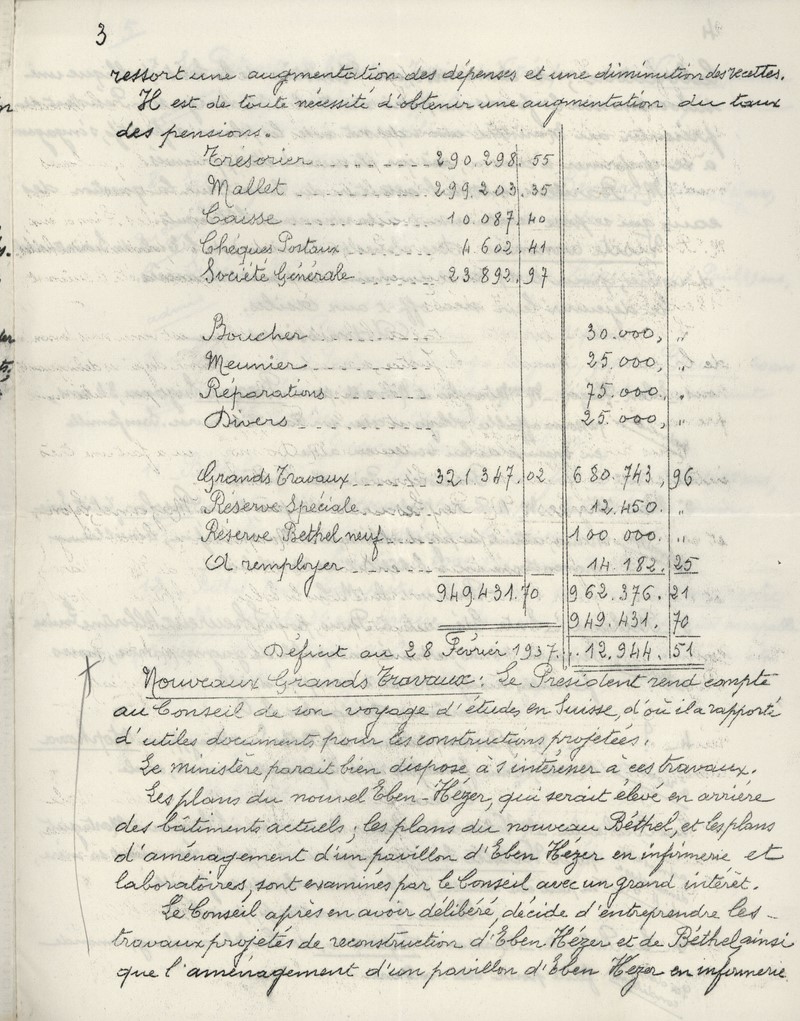 3
ressort une augmentation des dépenses et une diminution des recettes.
Il est de toute nécessité d'obtenir une augmentation du taux
des pensions.
Trésorier 290.298.55
Mallet 299.203.35
Caisse 10.087.40
Chèques Postaux 4.602.41
Société Générale 23.892.97
Boucher 30.000, "
Meunier 25.000, "
Réparations 75.000, "
Divers 25.000, "
Grands Travaux 321.347.02 680.743,96
Réserve Spéciale 12.450. "
Réserve Béthel neuf 100.000. "
A remployer 14.182.25
949.431.70 962.376.21
949.431.70
Déficit au 28 Février 1937... 12.944.51
Nouveaux Grands Travaux: Le Président rend compte
au Conseil de son voyage d'études en Suisse, d'où il a rapporté
d'utiles documents pour les constructions projetées.
Le ministère parait bien disposé à s'intéresser à ces travaux.
Les plans du nouvel Eben-Hézer, qui serait élevé en arrière
des bâtiments actuels; les plans du nouveau Béthel, et les plans
d'aménagement d'un pavillon d'Eben Hézer en infirmerie et
laboratoires, sont examinés par le Conseil avec un grand intérêt.
Le Conseil après en avoir délibéré, décide d'entreprendre les
travaux projetés de reconstruction d'Eben Hézer et de Béthel, ainsi
que l'aménagement d'un pavillon d'Eben Hézer en infirmerie